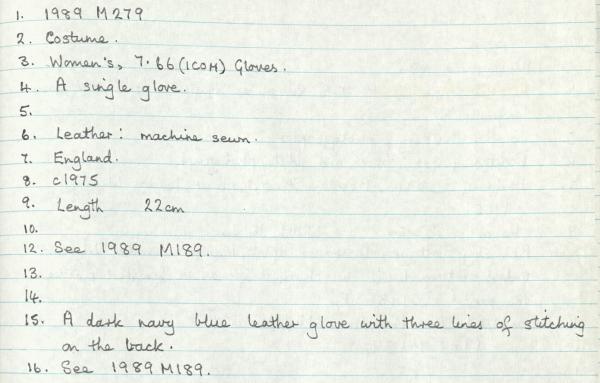 1. 1989 M279
2. Costume.
3. Women's, 7.66 (ICOM) Gloves.
4. A single glove.
5.
6. Leather: machine sewn.
7. England.
8. c1975
9. Length 22cm
10.
12. See 1989 M189.
13.
14.
15. A dark navy blue leather glove with three lines of stitching
on the back.
16. See 1989 M189.